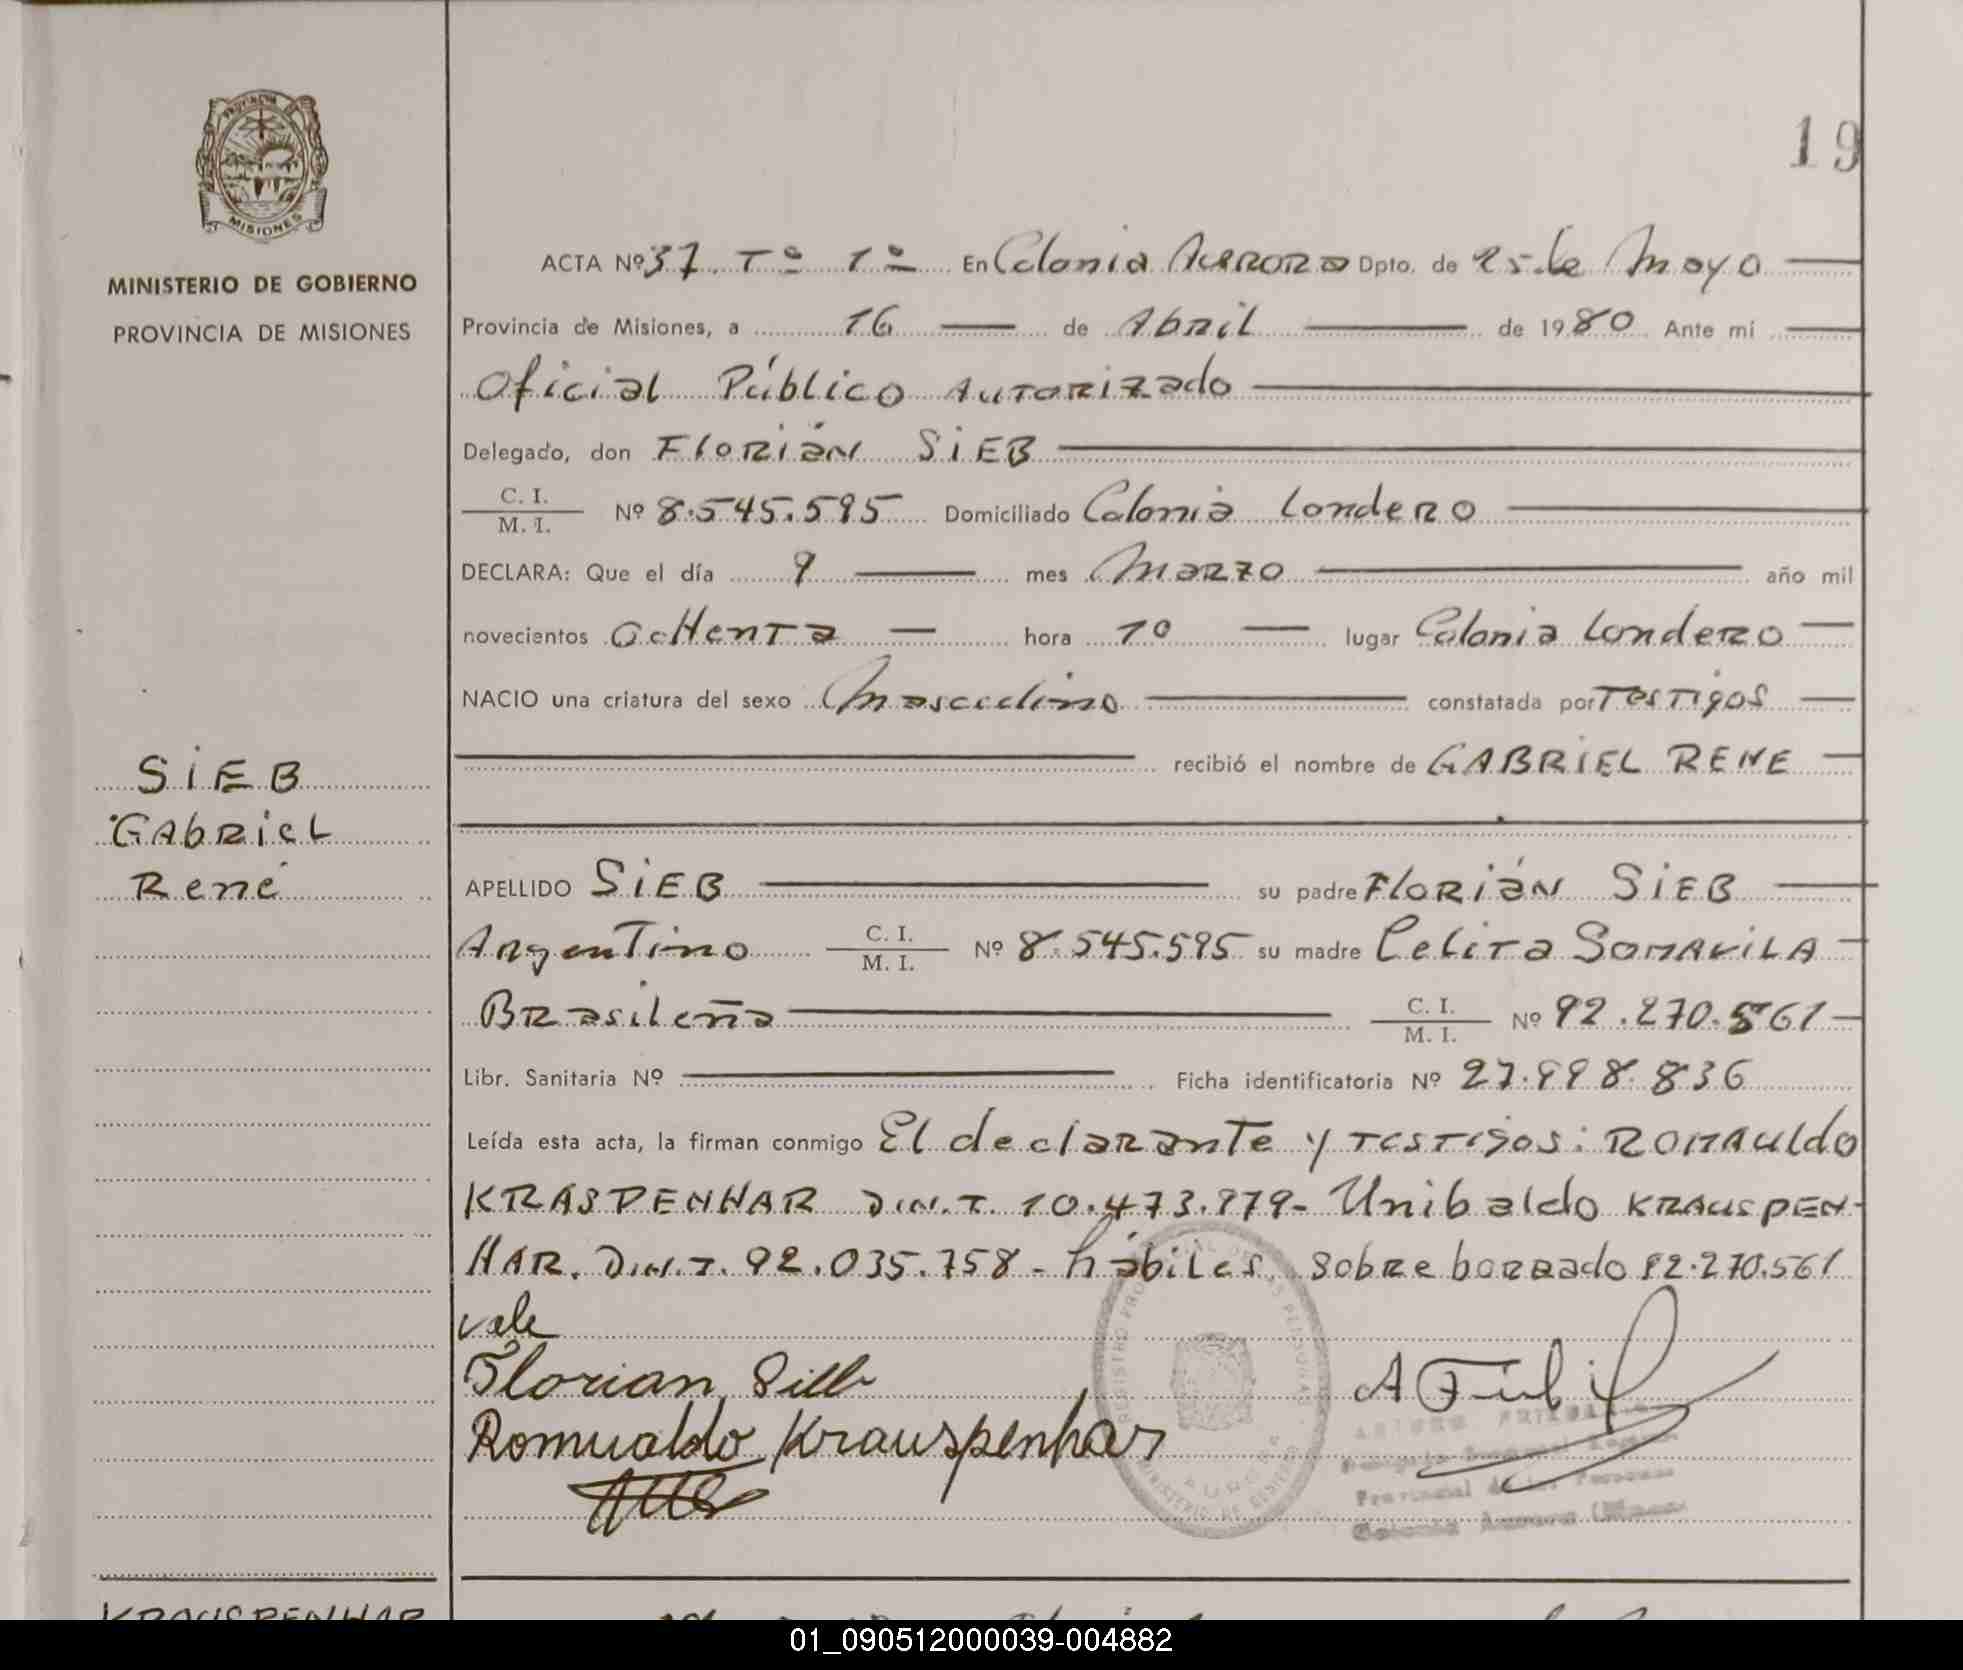 19
PROVINCIA
MISIONES
MINISTERIO DE GOBIERNO
PROVINCIA DE MISIONES
SIEB
GAbRieL
René
ACTA Nº 37 Tº 1º En Colonia AURORA Dpto. de 25 de Mayo
Provincia de Misiones, a 16 de Abril de 1980 Ante mi
Oficial Público Autorizado
Delegado, don FLORIÁN SIEB
C. I.
M. I. Nº 8.545.595 Domiciliado Colonia Londero
DECLARA: Que el día 9 mes Marzo año mil
novecientos Ochenta hora 10 lugar Colonia Londero
NACIO una criatura del sexo Masculino constatada por Testigos
recibió el nombre de GABRIEL RENE
APELLIDO SIEB su padre FLORIÁN SIEB
Argentino C. I.
M. I. Nº 8.545.595 su madre Celita SOMAVILA
Brasileña C. I.
M. I. Nº 92.270.561
Libr. Sanitaria Nº Ficha identificatoria Nº 27.998.836
Leída esta acta, la firman conmigo El declarante y testigos: ROMAULdo
KRASPENHAR D.N.I. 10.473.979- Unibaldo KRAUSPEN-
HAR. D.N.I. 92.035.758 - hábiles. Sobre borrado 92.270.561
vale
Florian Sieb
Romualdo Krauspenhar
REGISTRO PROVINCIAL DE LAS PERSONAS
MINISTERIO DE GOBIERNO
AURORA
Provincial de las Personas
Colonia Aurora
KRAUSPENHAR
01_090512000039-004882